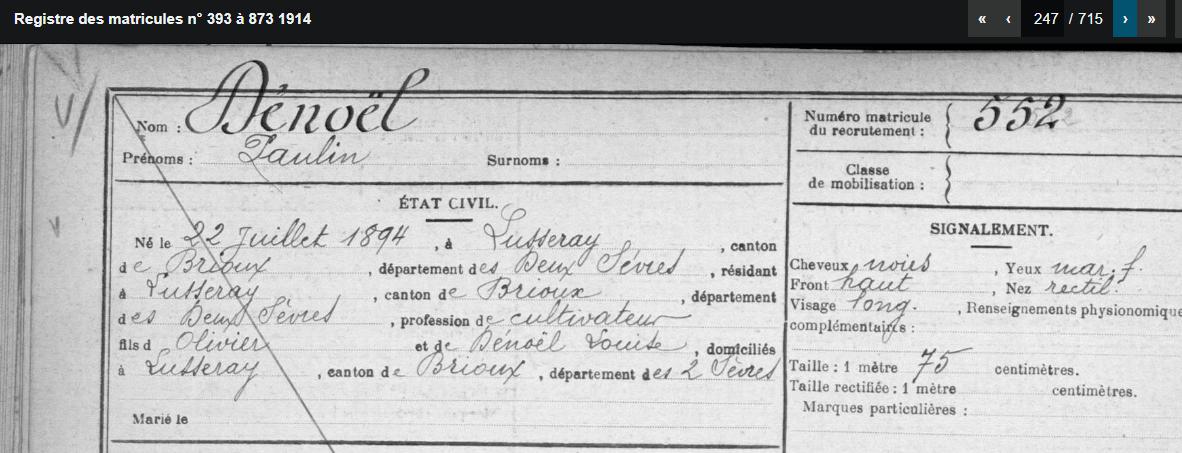 Registre des matricules n° 393 à 873 1914
« ‹ 247 / 715 › »
Nom : Dénoël
Prénoms : Paulin Surnoms :
ÉTAT CIVIL.
Né le 22 Juillet 1894, à Lusseray, canton
de Brioux, département des Deux Sèvres, résidant
à Lusseray, canton de Brioux, département
des Deux Sèvres, profession de cultivateur
fils d Olivier et de Dénoël Louise, domiciliés
à Lusseray, canton de Brioux, département des 2 Sèvres
Marié le
Numéro matricule
du recrutement : 552
Classe
de mobilisation :
SIGNALEMENT.
Cheveux noirs, Yeux mar. f.
Front haut, Nez rectil.
Visage long., Renseignements physionomique
complémentaires :
Taille : 1 mètre 75 centimètres.
Taille rectifiée : 1 mètre centimètres.
Marques particulières :